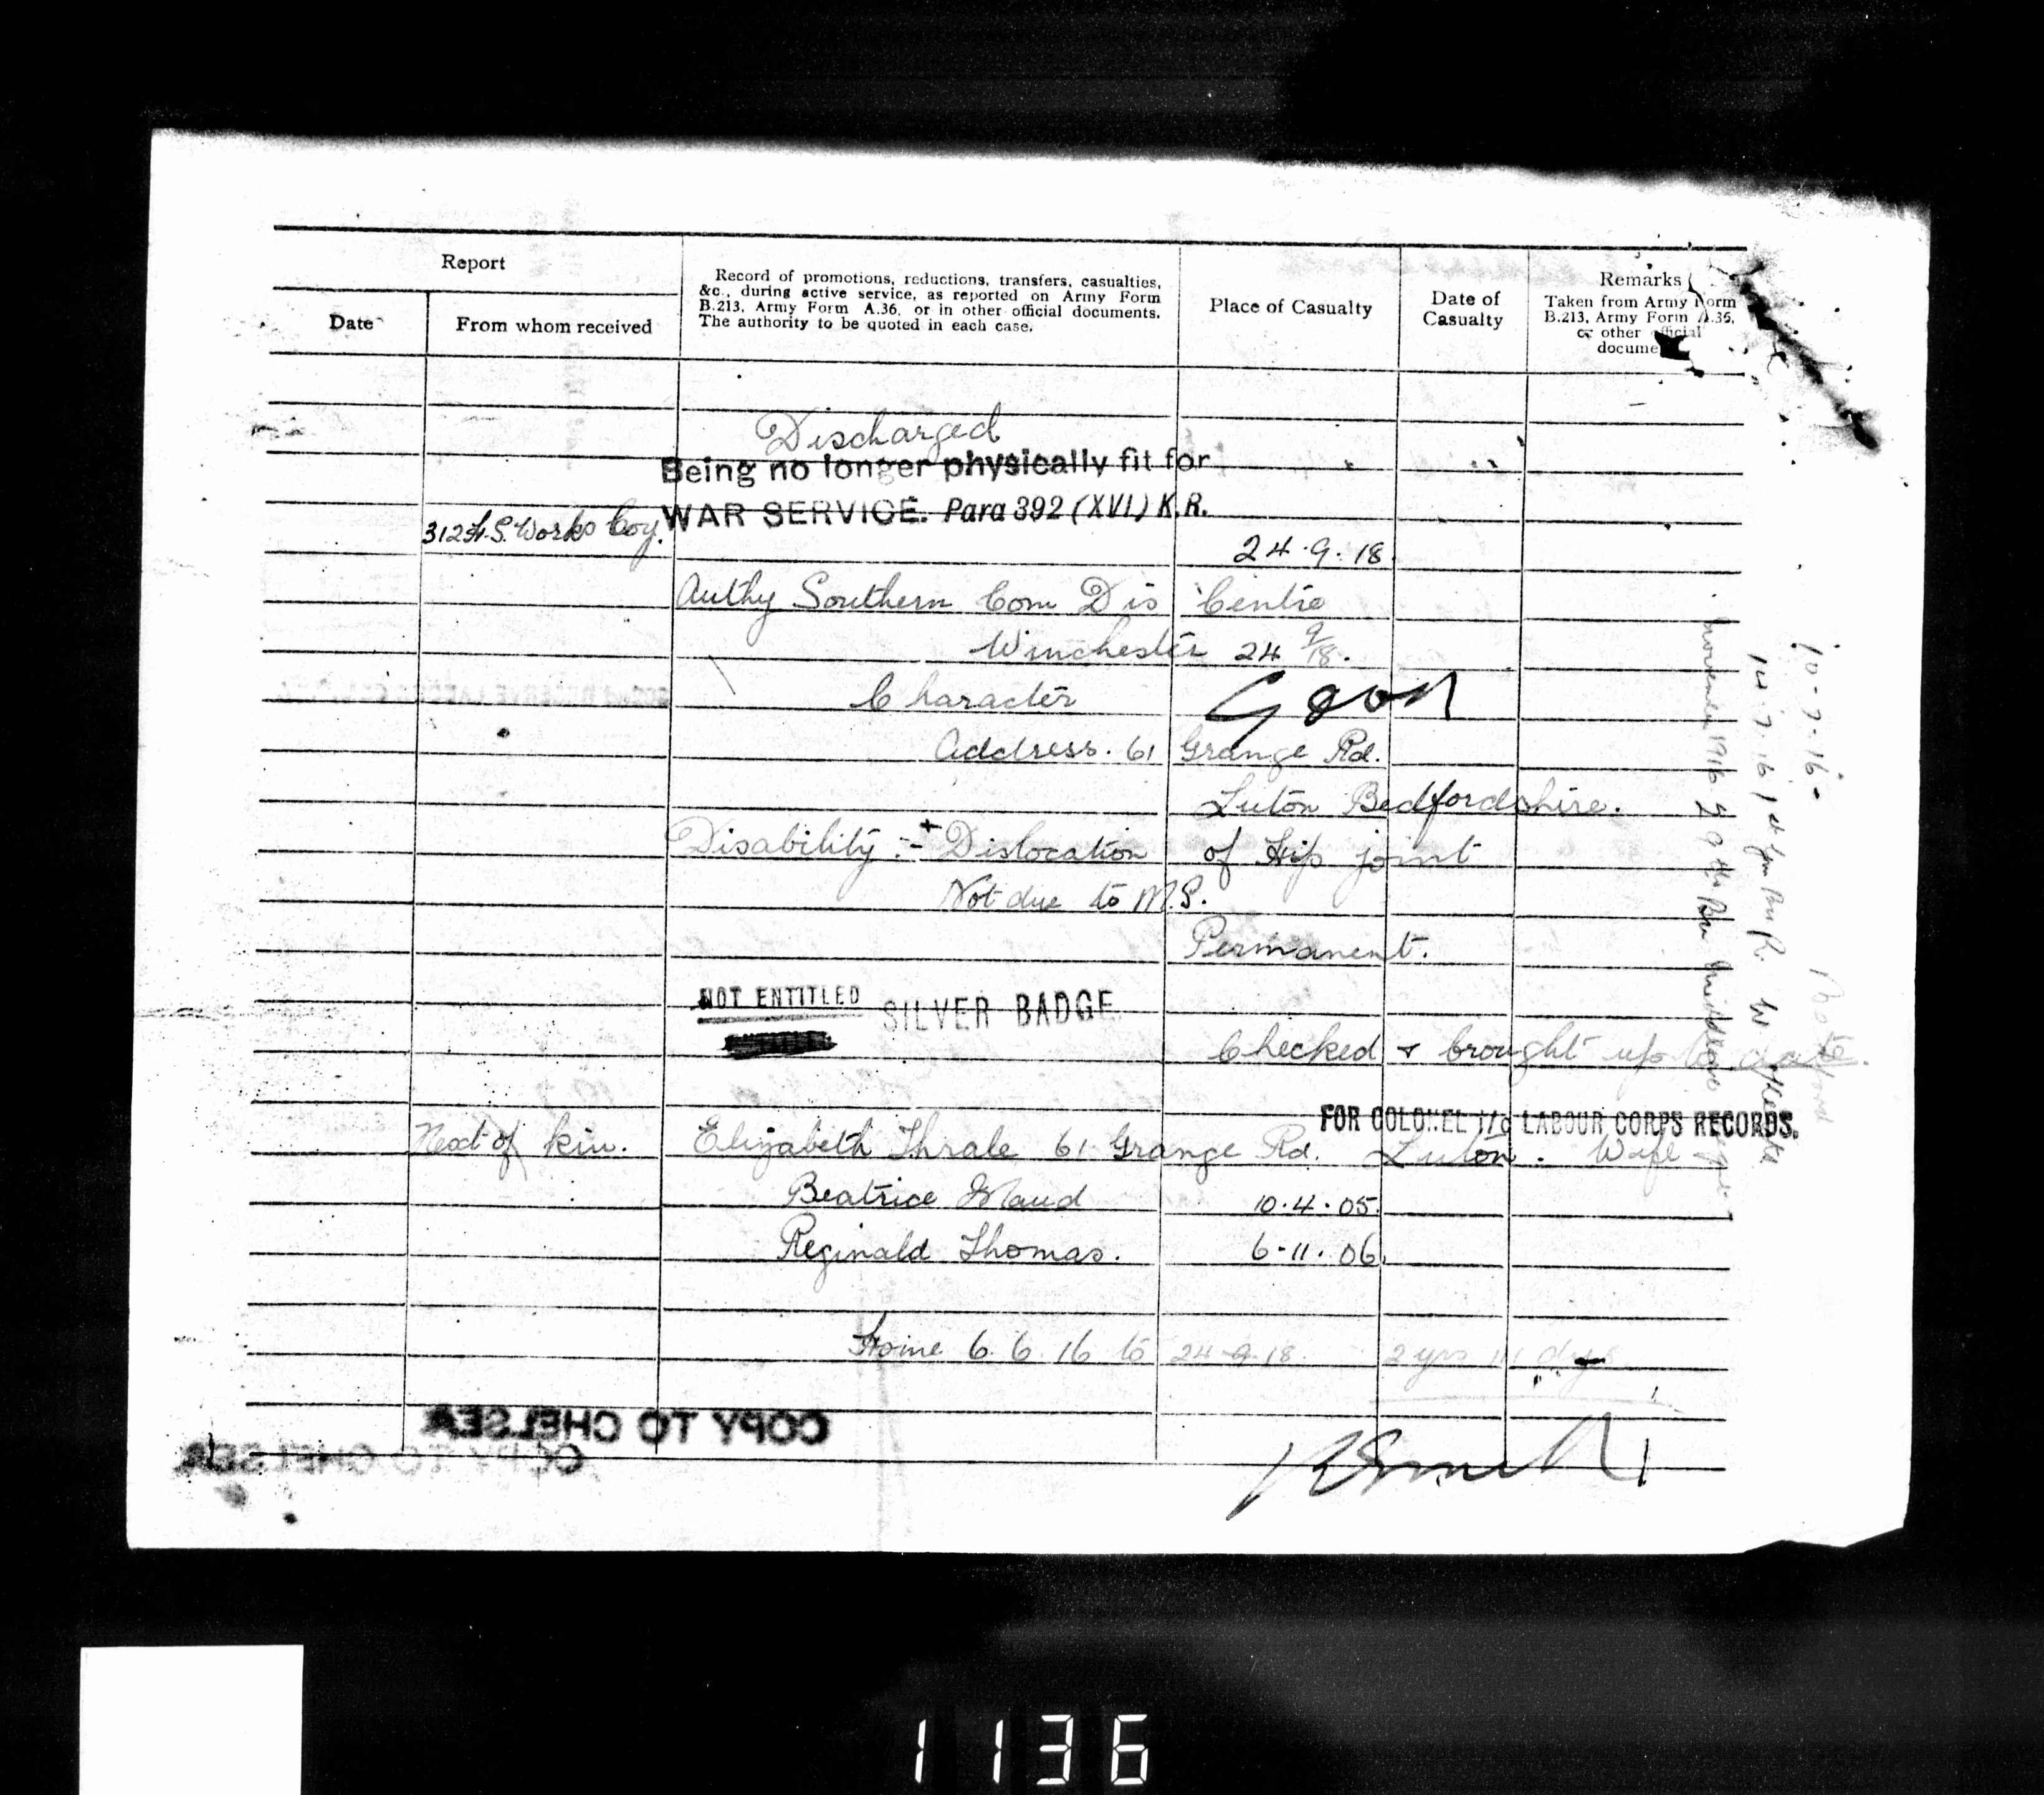 Report
Date
From whom received
Record of promotions, reductions, transfers, casualties,
&c., during active service, as reported on Army Form
B.213, Army Form A.36, or in other official documents.
The authority to be quoted in each case.
Place of Casualty
Date of
Casualty
Remarks
Taken from Army Form
B.213, Army Form A.36,
or other official
docume
Discharged
Being no longer physically fit for
WAR SERVICE. Para 392 (XVI) K.R.
312 H.S. Works Coy.
24.9.18.
Authy Southern Com Dis Centre
Winchester 24 9/18.
Character Good
Address. 61 Grange Rd.
Luton Bedfordshire.
Disability :- Dislocation of Hip joint
Not due to M.S.
Permanent.
NOT ENTITLED SILVER BADGE
Checked & brought up to date.
FOR COLONEL I/c LABOUR CORPS RECORDS.
Next of kin. Elizabeth Thrale 61 Grange Rd. Luton. Wife
Beatrice Maud 10.4.05.
Reginald Thomas. 6.11.06.
Home 6.6.16 to 24.9.18. 2 yrs 111 days
COPY TO CHELSEA
COPY TO CHELSEA
10-7-16
14.7.16
November 1916
1136